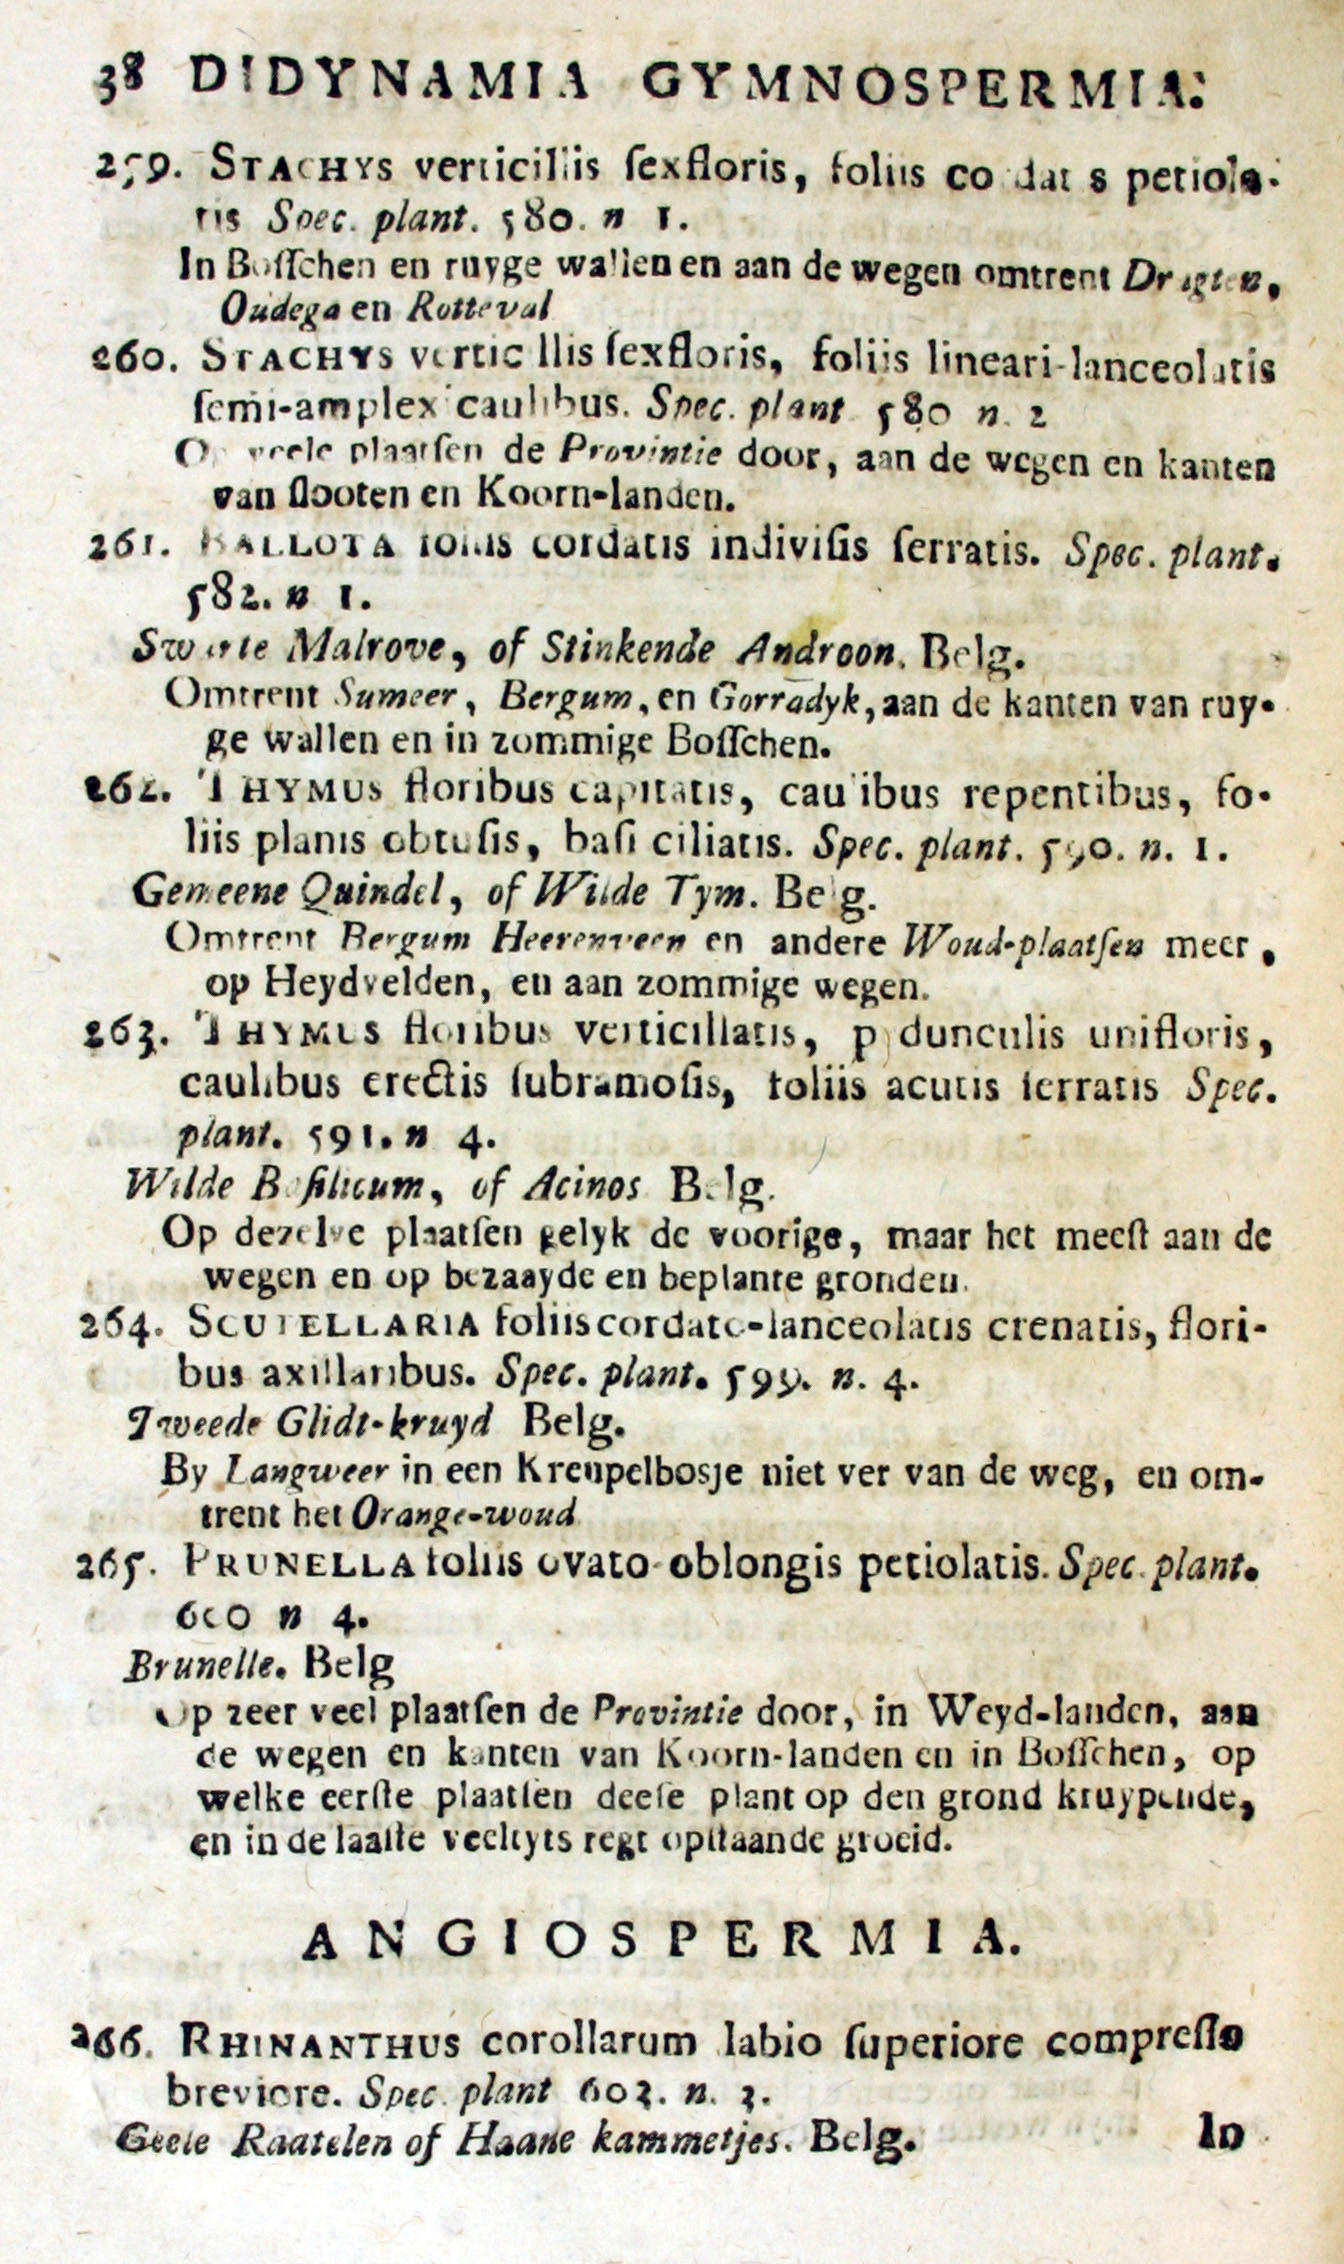 38 DIDYNAMIA GYMNOSPERMIA.
259. STACHYS verticillis ſexfloris, foliis cordatis petiola-
tis Spec. plant. 580. n 1.
In Boſſchen en ruyge wallen en aan de wegen omtrent Dragten,
Oudega en Rotteval
260. STACHYS verticillis ſexfloris, foliis lineari-lanceolatis
ſemi-amplex caulibus. Spec. plant 580 n. 2
Op veele plaatſen de Provintie door, aan de wegen en kanten
van ſlooten en Koorn-landen.
261. BALLOTA foliis cordatis indiviſis ſerratis. Spec. plant.
582. n 1.
Swarte Malrove, of Stinkende Androon. Belg.
Omtrent Sumeer, Bergum, en Gorradyk, aan de kanten van ruy-
ge wallen en in zommige Boſſchen.
262. THYMUS floribus capitatis, caulibus repentibus, fo-
liis planis obtuſis, baſi ciliatis. Spec. plant. 590. n. 1.
Gemeene Quindel, of Wilde Tym. Belg.
Omtrent Bergum Heerenveen en andere Woud-plaatſen meer,
op Heydvelden, en aan zommige wegen.
263. THYMUS floribus verticillatis, pedunculis unifloris,
caulibus erectis ſubramoſis, foliis acutis ſerratis Spec.
plant. 591. n 4.
Wilde Baſilicum, of Acinos Belg.
Op dezelve plaatſen gelyk de voorige, maar het meeſt aan de
wegen en op bezaayde en beplante gronden.
264. SCUTELLARIA foliis cordato-lanceolatis crenatis, flori-
bus axillaribus. Spec. plant. 599. n. 4.
Tweede Glidt-kruyd Belg.
By Langweer in een Kreupelbosje niet ver van de weg, en om-
trent het Orange-woud
265. PRUNELLA foliis ovato-oblongis petiolatis. Spec. plant.
600 n 4.
Brunelle. Belg
Op zeer veel plaatſen de Provintie door, in Weyd-landen, aan
de wegen en kanten van Koorn-landen en in Boſſchen, op
welke eerſte plaatſen deeſe plant op den grond kruypende,
en in de laatſte veeltyts regt opſtaande groeid.
ANGIOSPERMIA.
266. RHINANTHUS corollarum labio ſuperiore compreſſo
breviore. Spec. plant 603. n. 3.
Geele Raatelen of Haane kammetjes. Belg.
In